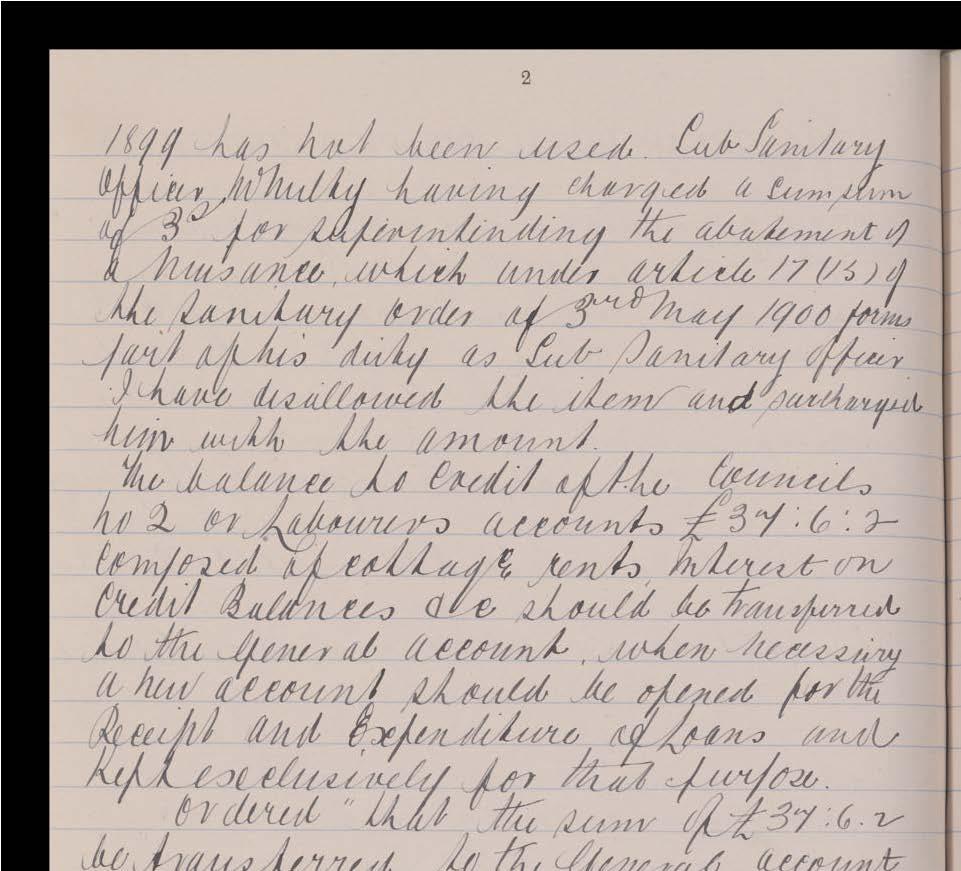 2
1899 has not been used. Sub Sanitary
Officer having charged a sum sum
of 3s for superintending the abatement of
a Nuisance, which under article 17 (13) of
the Sanitary Order of 3rd May 1900 forms
part of his duty as Sub Sanitary officer
I have disallowed the item and surcharged
him with the amount.
The balance to Credit of the Councils
No 2 or Labourers accounts £37:6:2
Composed of cottage rents, Interest on
Credit Balances &c should be transferred
to the General account, when necessary
a new account should be opened for the
Receipt and Expenditure of Loans and
Kept exclusively for that purpose.
Ordered "that the sum of £37:6.2
be transferred to the General account